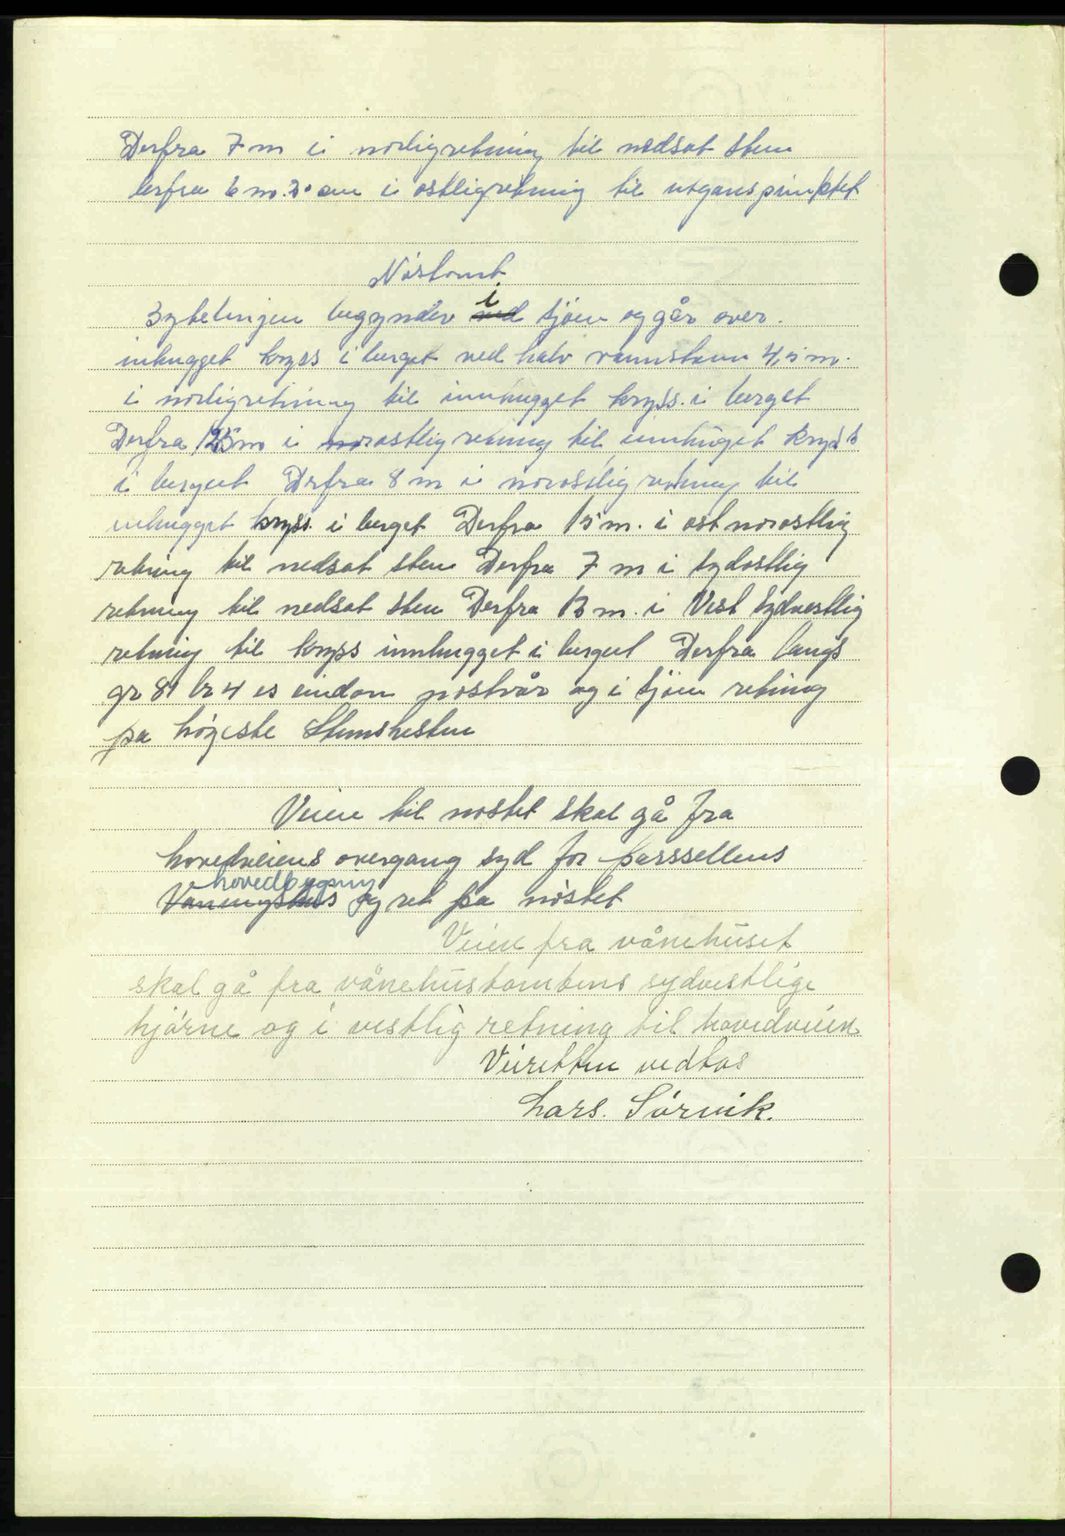 Derfra 7 m i nordigretning til nedsat sten
derfra 6 m. 30 cm i østligretning til utganspunktet
Nøstomt
Bytelinjen begynder i sjøen og går over
inhugget kryss i berget ved halv vannstann 4,5 m.
i nordigretning til innhugget kryss. i berget
Derfra 125 m i norostlig retning til innhuget kryss
i berget Drfra 8 m i norostlig retning til
inhugget kryss. i berget Derfra 15 m. i ost norostlig
retning til nedsat sten Derfra 7 m i sydostlig
retning til nedsat sten Derfra 13 m. i Vest Sydvestlig
retning til kryss innhugget i berget Derfra langs
gr 81 br 4 es eindom nostvår og i sjøen retning
pa høgeste Stemshesten
Veien til nostet skal gå fra
hovedveiens overgang syd for passsellens
hovedbygning
Vanningshus og ret pa nøstet
Veien fra vånehuset
skal gå fra vånehustomtens sydvestlige
hjørne og i vestlig retning til hovedveien
Veiretten vedtas
Lars. Sørvik.